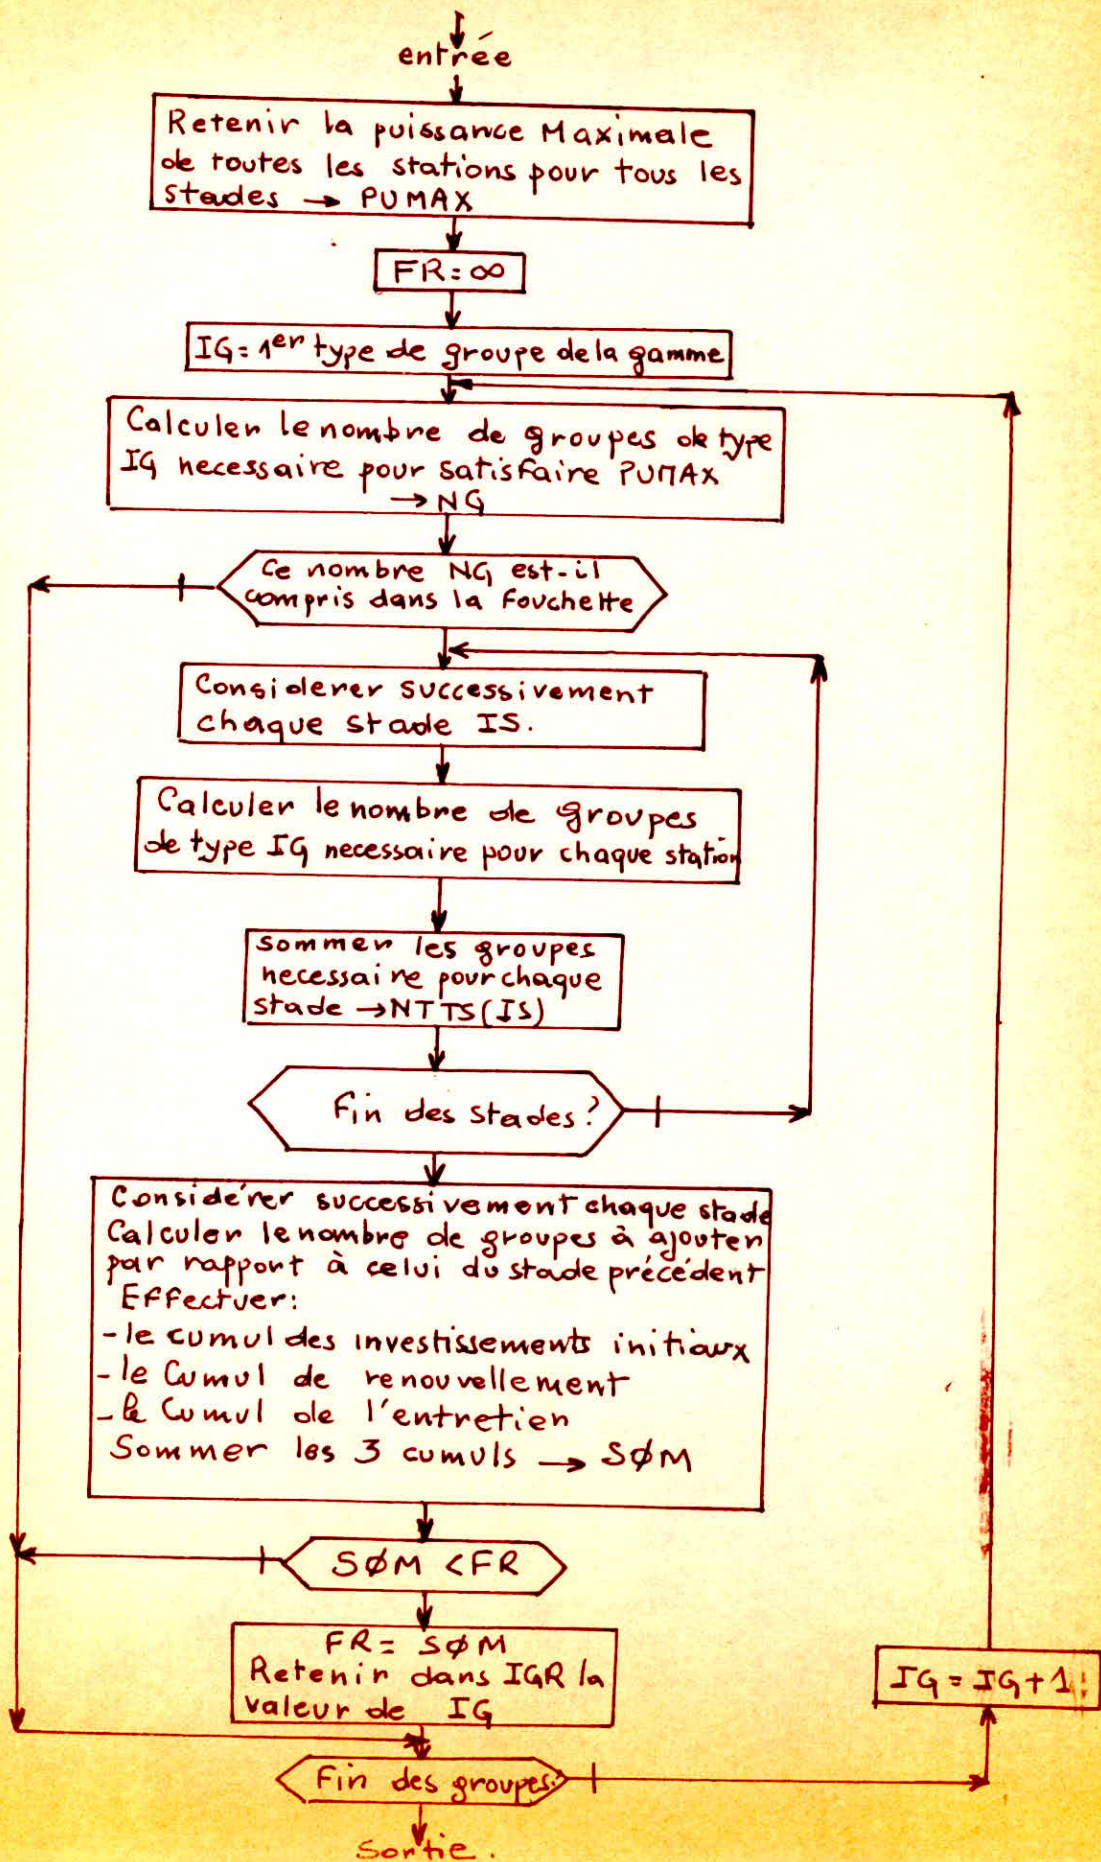 entrée
Retenir la puissance Maximale
de toutes les stations pour tous les
stades → PUMAX
FR = ∞
IG = 1er type de groupe de la gamme
Calculer le nombre de groupes de type
IG necessaire pour satisfaire PUMAX
→ NG
Ce nombre NG est-il
compris dans la Fouchette
Considerer successivement
chaque stade IS.
Calculer le nombre de groupes
de type IG necessaire pour chaque station
Sommer les groupes
necessaire pour chaque
stade → NTTS(IS)
Fin des stades?
Considérer successivement chaque stade
Calculer le nombre de groupes à ajouter
par rapport à celui du stade précédent
Effectuer:
- le cumul des investissements initiaux
- le Cumul de renouvellement
- le Cumul de l'entretien
Sommer les 3 cumuls → SØM
SØM < FR
FR = SØM
Retenir dans IGR la
valeur de IG
IG = IG + 1
Fin des groupes?
Sortie.